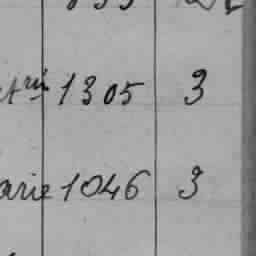 1305 3
arie 1046 3